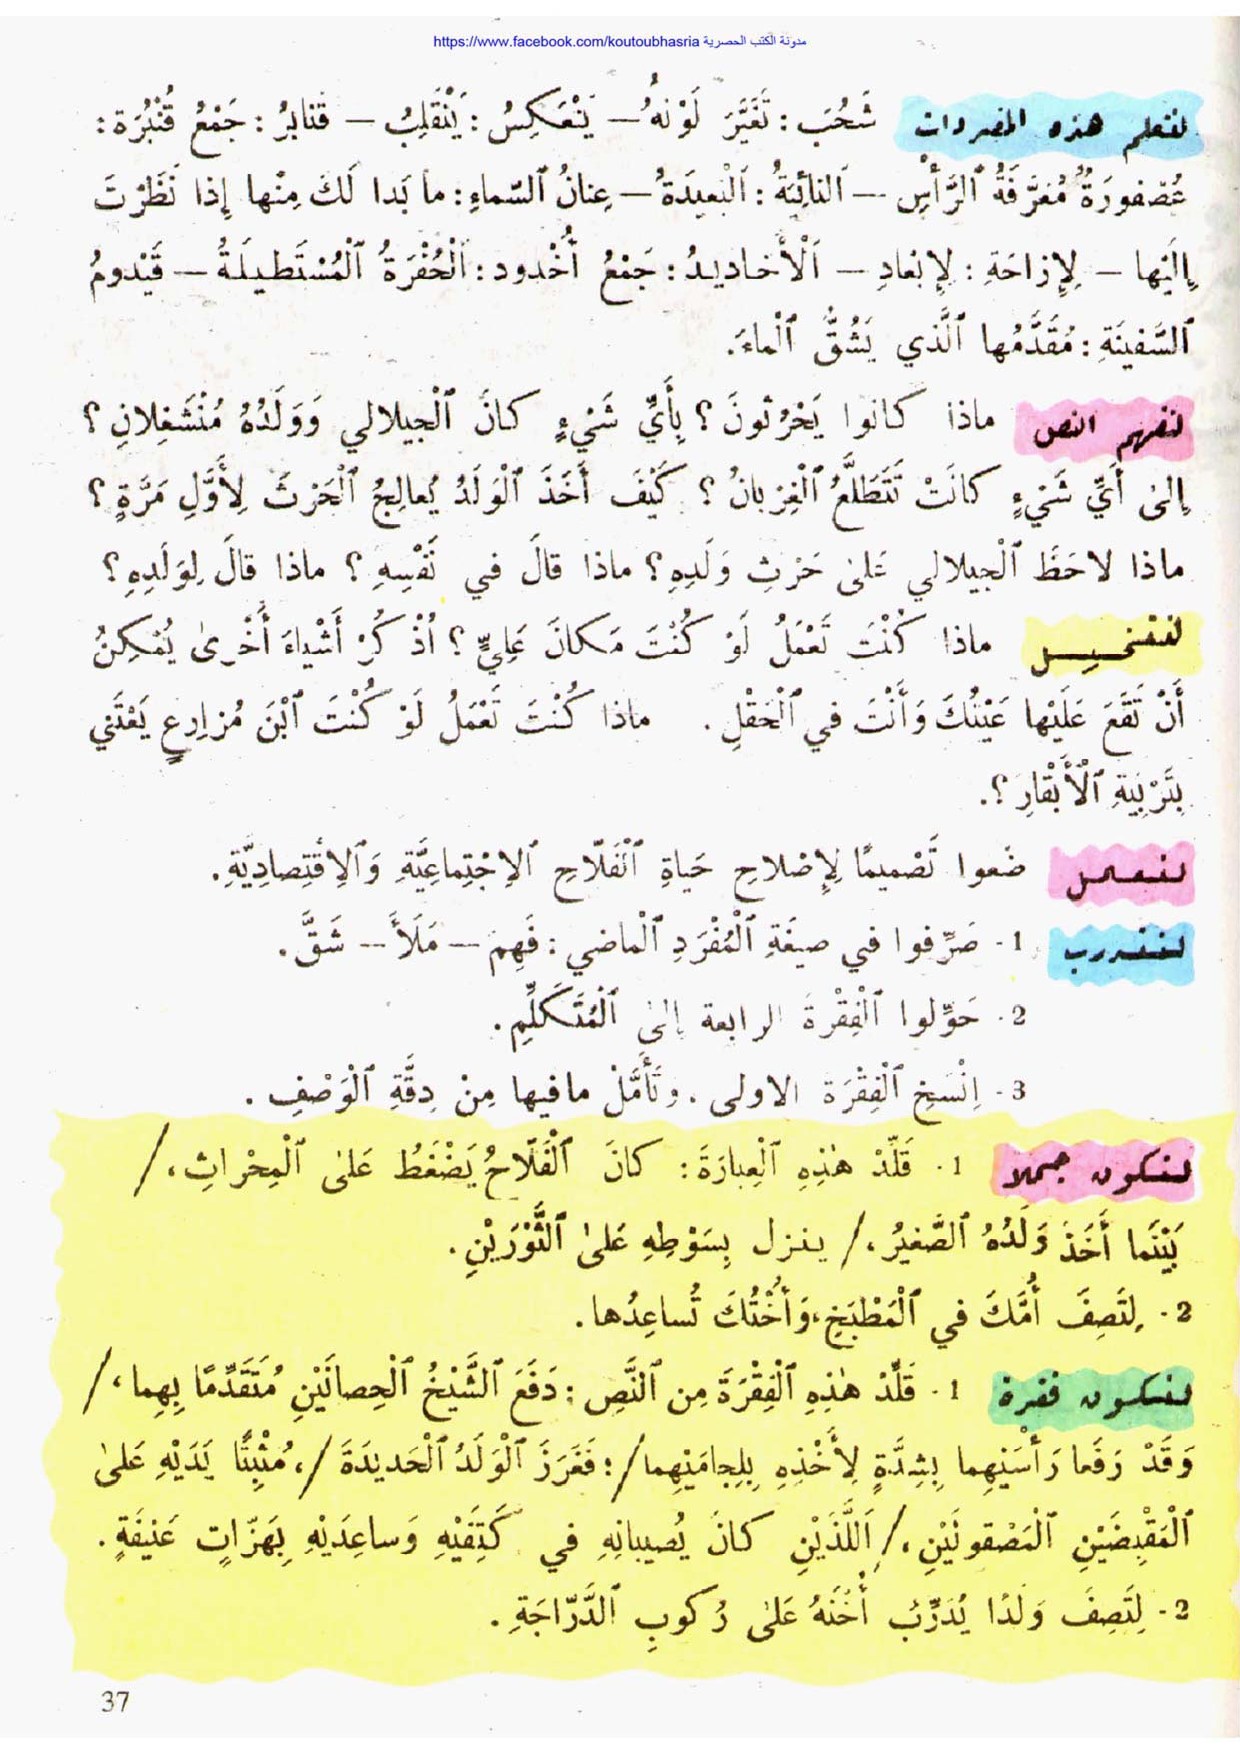 مدونة الكتب الحصرية https://www.facebook.com/koutoubhasria
لنتعلم هذه المفردات شَحُبَ : تَغَيَّرَ لَوْنُهُ — يَنْعَكِسُ : يَنْقَلِبُ — قنابرُ : جَمْعُ قُنْبُرَة :
عُصْفورَةٌ مُعَرَّفَةُ ٱلرَّأْسِ — ٱلنائِيَةُ : ٱلْبَعيدَةُ — عِنانُ ٱلسَّماءِ : ما بَدا لَكَ مِنْها إِذا نَظَرْتَ
إِلَيْها — لِإِزاحَةِ : لِإِبْعادِ — اَلْأَخاديدُ : جَمْعُ أُخْدود : اَلْحُفْرَةُ ٱلْمُسْتَطيلَةُ — قَيْدومُ
ٱلسَّفينَةِ : مُقَدَّمُها ٱلَّذي يَشُقُّ ٱلْماءَ.
لنفهم النص ماذا كانوا يَحْرُثونَ ؟ بِأَيِّ شَيْءٍ كانَ ٱلْجيلالي وَوَلَدُهُ مُنْشَغِلانِ ؟
إِلىٰ أَيِّ شَيْءٍ كانَتْ تَتَطَلَّعُ ٱلْغِرْبانُ ؟ كَيْفَ أَخَذَ ٱلْوَلَدُ يُعالِجُ ٱلْحَرْثَ لِأَوَّلِ مَرَّةٍ ؟
ماذا لاحَظَ ٱلْجيلالي عَلىٰ حَرْثِ وَلَدِهِ ؟ ماذا قالَ في نَفْسِهِ ؟ ماذا قالَ لِوَلَدِهِ ؟
لنتخيل ماذا كُنْتَ تَعْمَلُ لَوْ كُنْتَ مَكانَ عَلِيٍّ ؟ أُذْكُرْ أَشْياءَ أُخْرىٰ يُمْكِنُ
أَنْ تَقَعَ عَلَيْها عَيْنُكَ وَأَنْتَ في ٱلْحَقْلِ . ماذا كُنْتَ تَعْمَلُ لَوْ كُنْتَ ٱبْنَ مُزارِعٍ يَعْتَني
بِتَرْبِيَةِ ٱلْأَبْقارِ ؟.
لنعمل ضَعوا تَصْميمًا لِإِصْلاحِ حَياةِ ٱلْفَلّاحِ ٱلاِجْتِماعِيَّةِ وَٱلاِقْتِصادِيَّةِ.
لنتدرب 1 - صَرِّفوا في صيغَةِ ٱلْمُفْرَدِ ٱلْماضي : فَهِمَ — مَلَأَ — شَقَّ .
2 - حَوِّلوا ٱلْفِقْرَةَ الرابعة إِلىٰ ٱلْمُتَكَلِّمِ .
3 - اِنْسَخِ ٱلْفِقْرَة الاولى . وتَأَمَّلْ مافيها مِنْ دِقَّةِ ٱلْوَصْفِ .
لنكون جملا 1 - قَلِّدْ هٰذِهِ ٱلْعِبارَةَ : كانَ ٱلْفَلّاحُ يَضْغَطُ عَلىٰ ٱلْمِحْراثِ ،/
بَيْنَما أَخَذَ وَلَدُهُ ٱلصَّغيرُ ،/ ينزل بِسَوْطِهِ عَلىٰ ٱلثَّوْرَيْنِ .
2 - لِتَصِفَ أُمَّكَ في ٱلْمَطْبَخِ ، وَأُخْتُكَ تُساعِدُها .
لنكون فقرة 1 - قَلِّدْ هٰذِهِ ٱلْفِقْرَةَ مِن ٱلنَّصِ : دَفَعَ ٱلشَّيْخُ ٱلْحِصانَيْنِ مُتَقَدِّمًا بِهِما ،/
وَقَدْ رَفَعا رَأْسَيْهِما بِشِدَّةٍ لِأَخْذِهِ بِلِجامَيْهِما / ؛ فَغَرَزَ ٱلْوَلَدُ ٱلْحَديدَةَ /، مُثْبِتًا يَدَيْهِ عَلىٰ
ٱلْمَقْبِضَيْنِ ٱلْمَصْقولَيْنِ ،/ اَللَّذَيْنِ كانَ يُصيبانِهِ في كَتِفَيْهِ وَساعِدَيْهِ بِهَزّاتٍ عَنيفَةٍ .
2 - لِتَصِفَ وَلَدًا يُدَرِّبُ أُخْتَهُ عَلىٰ رُكوبِ ٱلدَّرّاجَةِ .
37